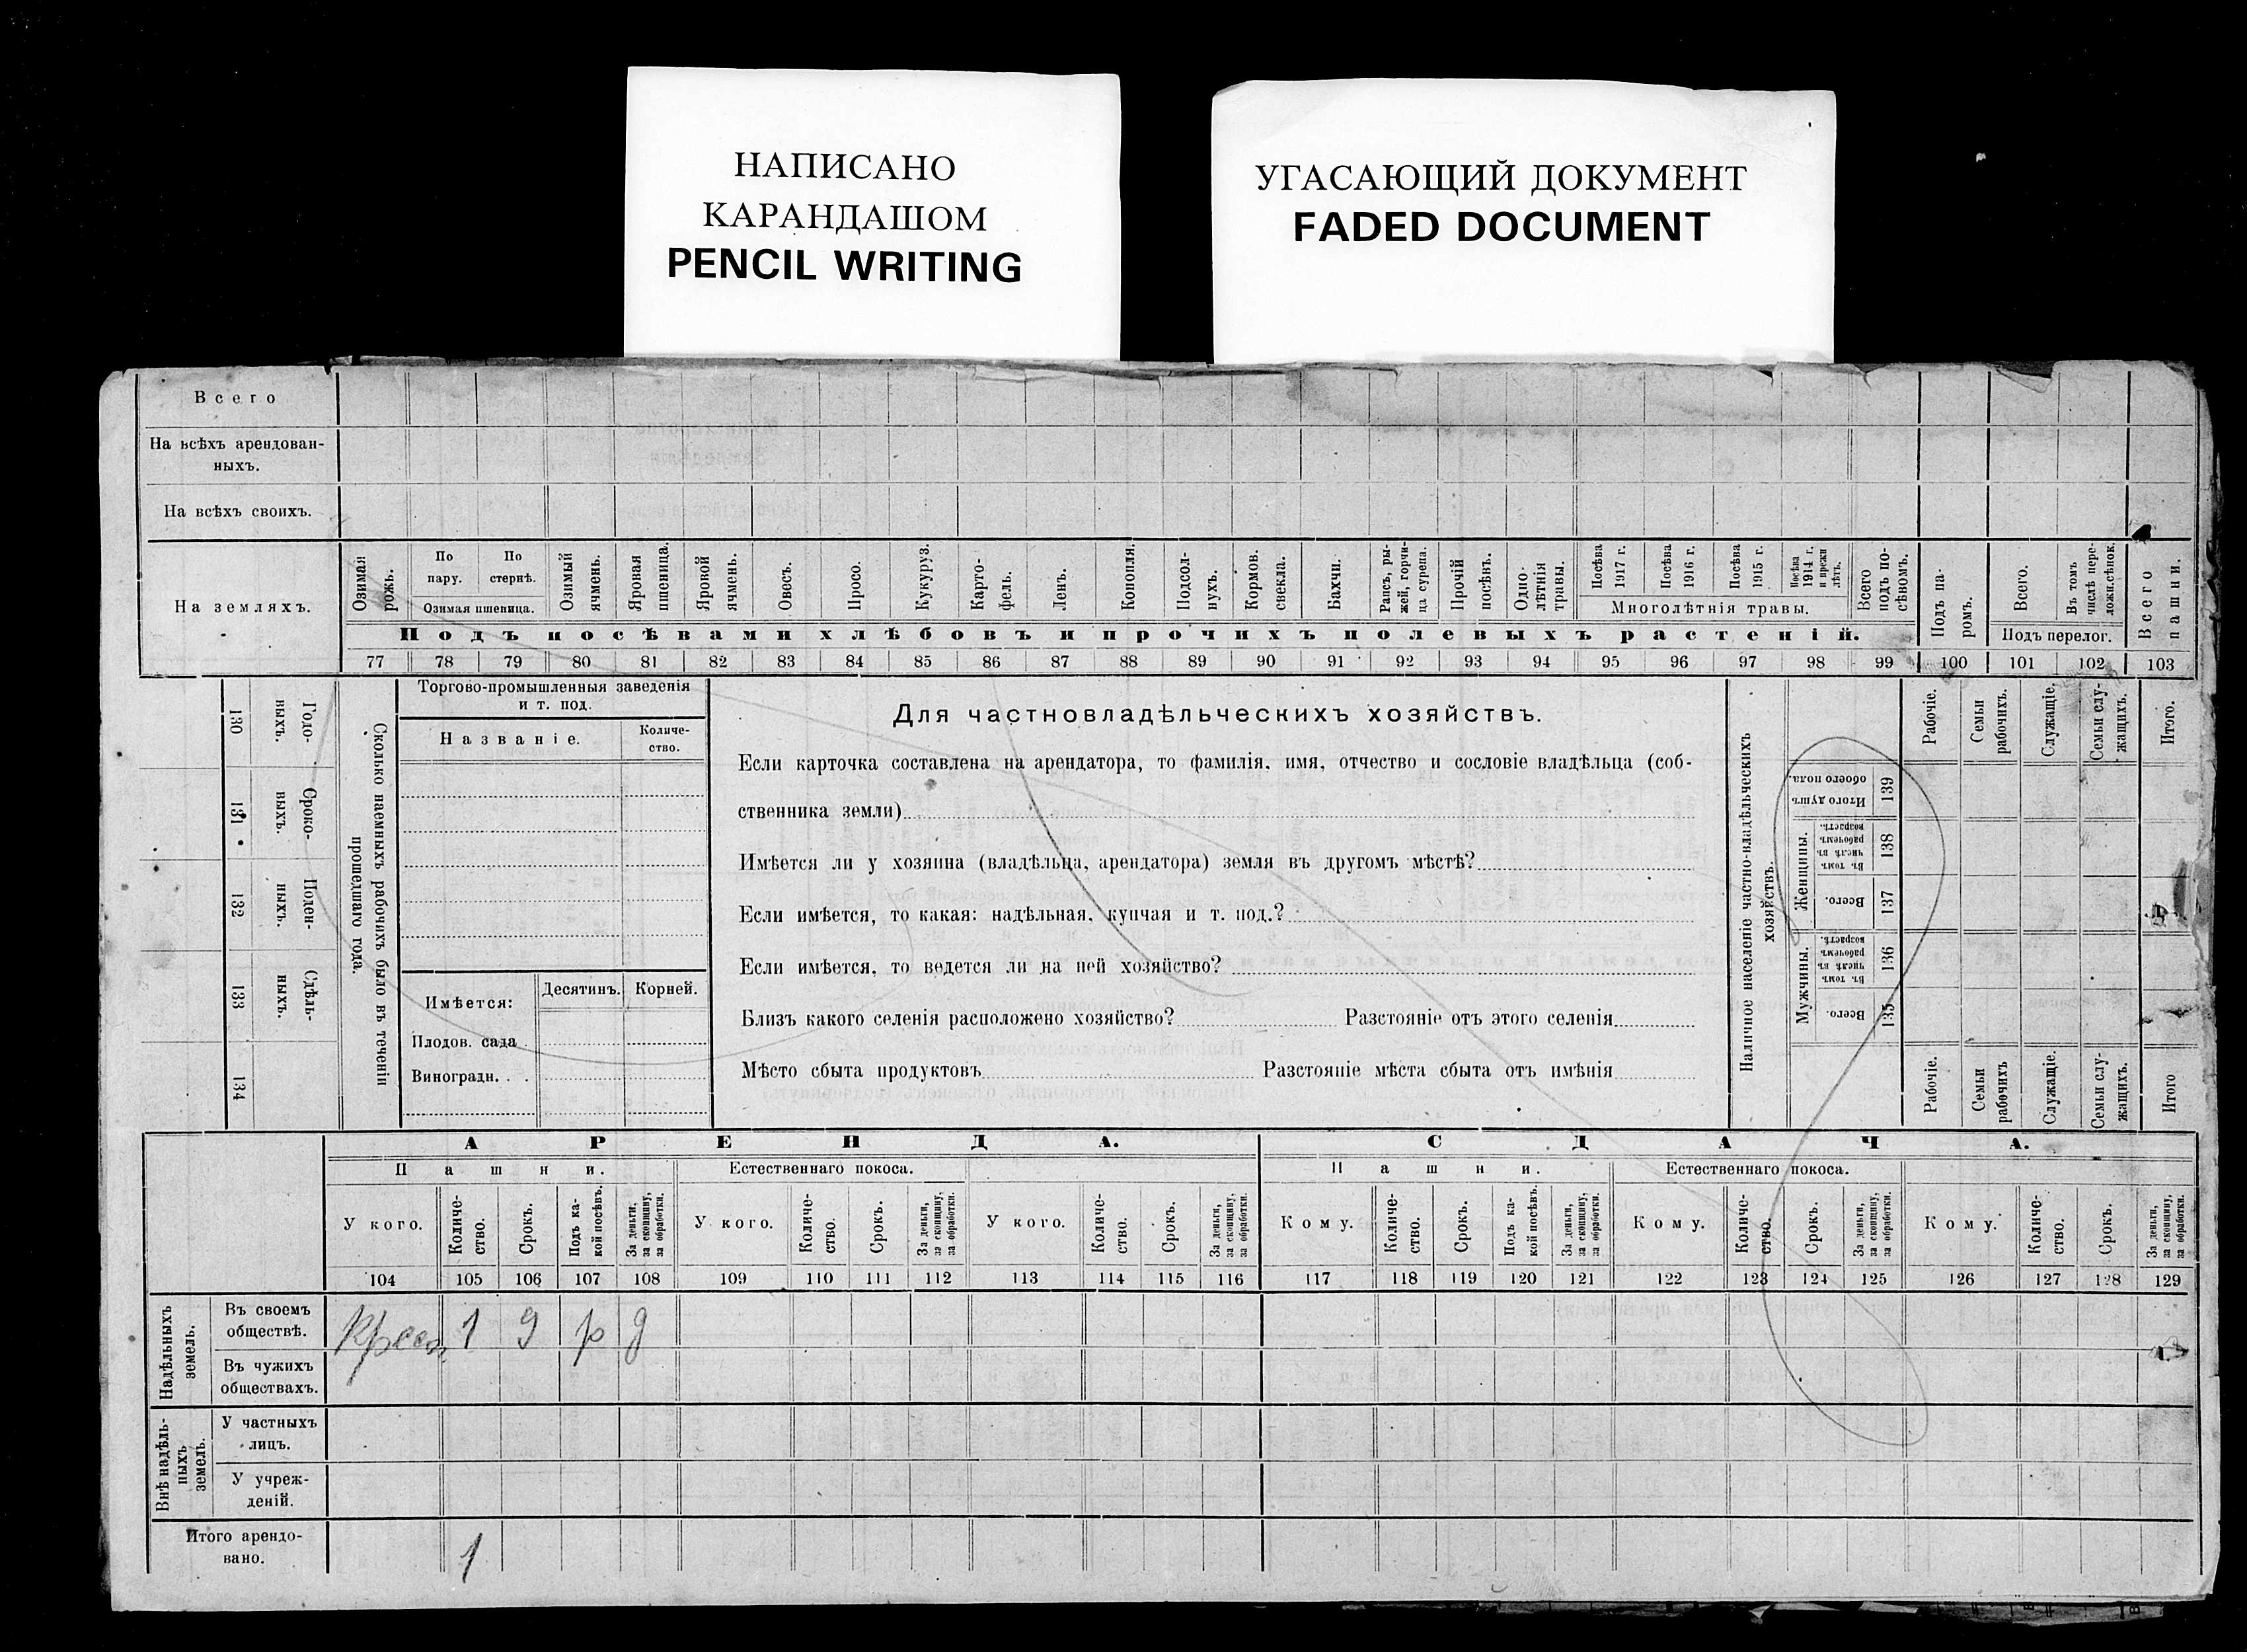 НАПИСАНО
КАРАНДАШОМ
PENCIL WRITING
УГАСАЮЩИЙ ДОКУМЕНТ
FADED DOCUMENT
Всего
На всѣхъ арендован-
ныхъ.
На всѣхъ своихъ.
На земляхъ.
Озимая рожь.
По пару.
По стернѣ.
Озимая пшеница.
Озимый ячмень.
Яровая пшеница.
Яровой ячмень.
Овесъ.
Просо.
Кукуруз.
Карто-
фель.
Ленъ.
Конопля.
Подсол-
нухъ.
Кормов.
свекла.
Бахчи.
Рапсъ, ры-
жей, горчи-
ца сурепа.
Прочій
посѣвъ.
Одно-
лѣтнія
травы.
Посѣва
1917 г.
Посѣва
1916 г.
Посѣва
1915 г.
Посѣва
1914 г.
и прежн
лѣтъ.
Многолѣтнія травы.
Всего
подъ по-
сѣвомъ.
Подъ па-
ромъ.
Всего.
Въ томъ
числѣ пере-
ложн.сѣнок.
Подъ перелог.
Всего
пашни.
Подъ посѣвами хлѣбовъ и прочихъ полевыхъ растеній.
77 78 79 80 81 82 83 84 85 86 87 88 89 90 91 92 93 94 95 96 97 98 99 100 101 102 103
130
Годо-
выхъ.
131
Сроко-
выхъ.
132
Поден-
ныхъ.
133
Сдѣль-
ныхъ.
134
Сколько наемныхъ рабочихъ было въ теченіи
прошедшаго года.
Торгово-промышленныя заведенія
и т. под.
Названіе.
Количе-
ство.
Имѣется:
Десятинъ.
Корней.
Плодов. сада
Виноградн. . .
Для частновладѣльческихъ хозяйствъ.
Если карточка составлена на арендатора, то фамилія, имя, отчество и сословіе владѣльца (соб-
ственника земли)
Имѣется ли у хозяина (владѣльца, арендатора) земля въ другомъ мѣстѣ?
Если имѣется, то какая: надѣльная, купчая и т. под.?
Если имѣется, то ведется ли на ней хозяйство?
Близъ какого селенія расположено хозяйство? Разстояніе отъ этого селенія
Мѣсто сбыта продуктовъ Разстояніе мѣста сбыта отъ имѣнія
Наличное населеніе частно-владѣльческихъ
хозяйствъ.
Итого душъ
обоего пола.
139
Женщины.
Въ томъ
числѣ въ
рабочемъ
возрастѣ.
138
Всего.
137
Мужчины.
Въ томъ
числѣ въ
рабочемъ
возрастѣ.
136
Всего.
135
Рабочіе.
Семьи
рабочихъ.
Служащіе.
Семьи слу-
жащихъ.
Итого.
Рабочіе.
Семьи
рабочихъ
Служащіе.
Семьи слу-
жащихъ.
Итого
АРЕНДА.
СДАЧА.
Пашни.
Естественнаго покоса.
Пашни.
Естественнаго покоса.
У кого.
Количе-
ство.
Срокъ.
Подъ ка-
кой посѣвъ.
За деньги,
за скопщину,
за обработки.
У кого.
Количе-
ство.
Срокъ.
За деньги,
за скопщину,
за обработки.
У кого.
Количе-
ство.
Срокъ.
За деньги,
за скопщину,
за обработки.
Кому.
Количе-
ство.
Срокъ.
Подъ ка-
кой посѣвъ.
За деньги,
за скопщину,
за обработки.
Кому.
Количе-
ство.
Срокъ.
За деньги,
за скопщину,
за обработки.
Кому.
Количе-
ство.
Срокъ.
За деньги,
за скопщину,
за обработки.
104 105 106 107 108 109 110 111 112 113 114 115 116 117 118 119 120 121 122 123 124 125 126 127 128 129
Надѣльныхъ
земель.
Въ своемъ
обществѣ.
1 р д
Въ чужихъ
обществахъ.
Внѣ надѣль-
ныхъ
земель.
У частныхъ
лицъ.
У учреж-
деній.
Итого арендо-
вано.
1